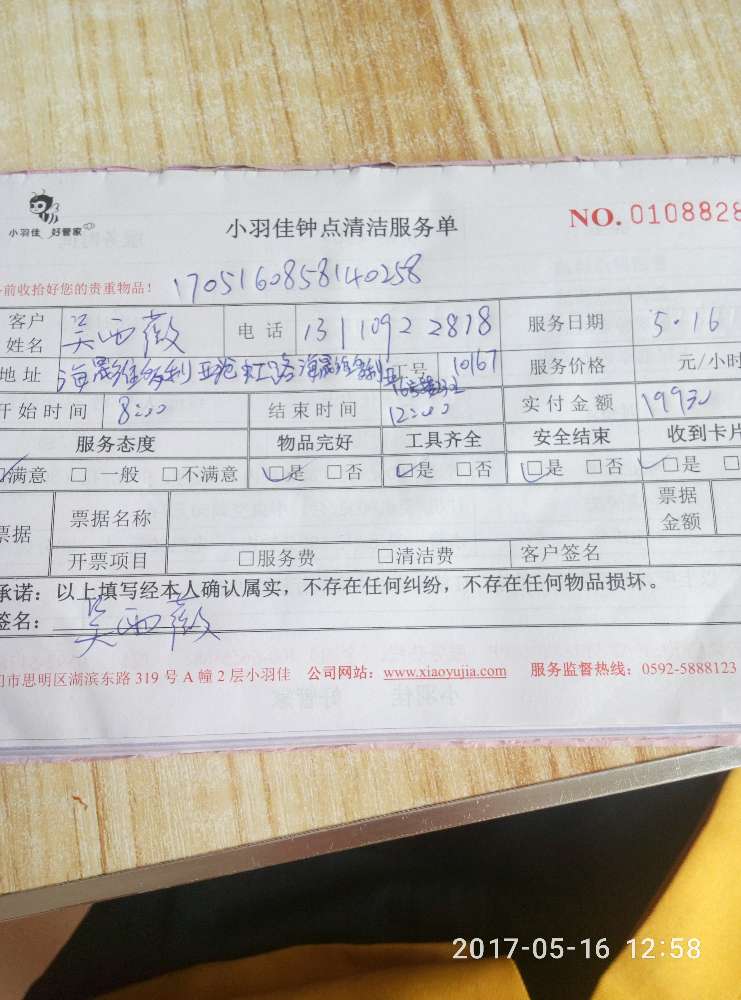 小羽佳 好管家
小羽佳钟点清洁服务单
NO. 0108828
前收拾好您的贵重物品！ 1705160858140258
客户姓名 吴西薇 电话 13110922878 服务日期 5·16
地址 海晟维多利亚沧虹路海晟维多利亚 工号 10167 服务价格 元/小时
开始时间 8:00 结束时间 12:00 实付金额
服务态度 物品完好 工具齐全 安全结束 收到卡片
满意 □ 一般 □不满意 □是 □否 □是 □否 □是 □否 □是
票据 票据名称 票据金额
开票项目 □服务费 □清洁费 客户签名
承诺：以上填写经本人确认属实，不存在任何纠纷，不存在任何物品损坏。
签名： 吴西薇
门市思明区湖滨东路 319 号 A 幢 2 层小羽佳 公司网站：www.xiaoyujia.com 服务监督热线：0592-5888123
2017-05-16 12:58